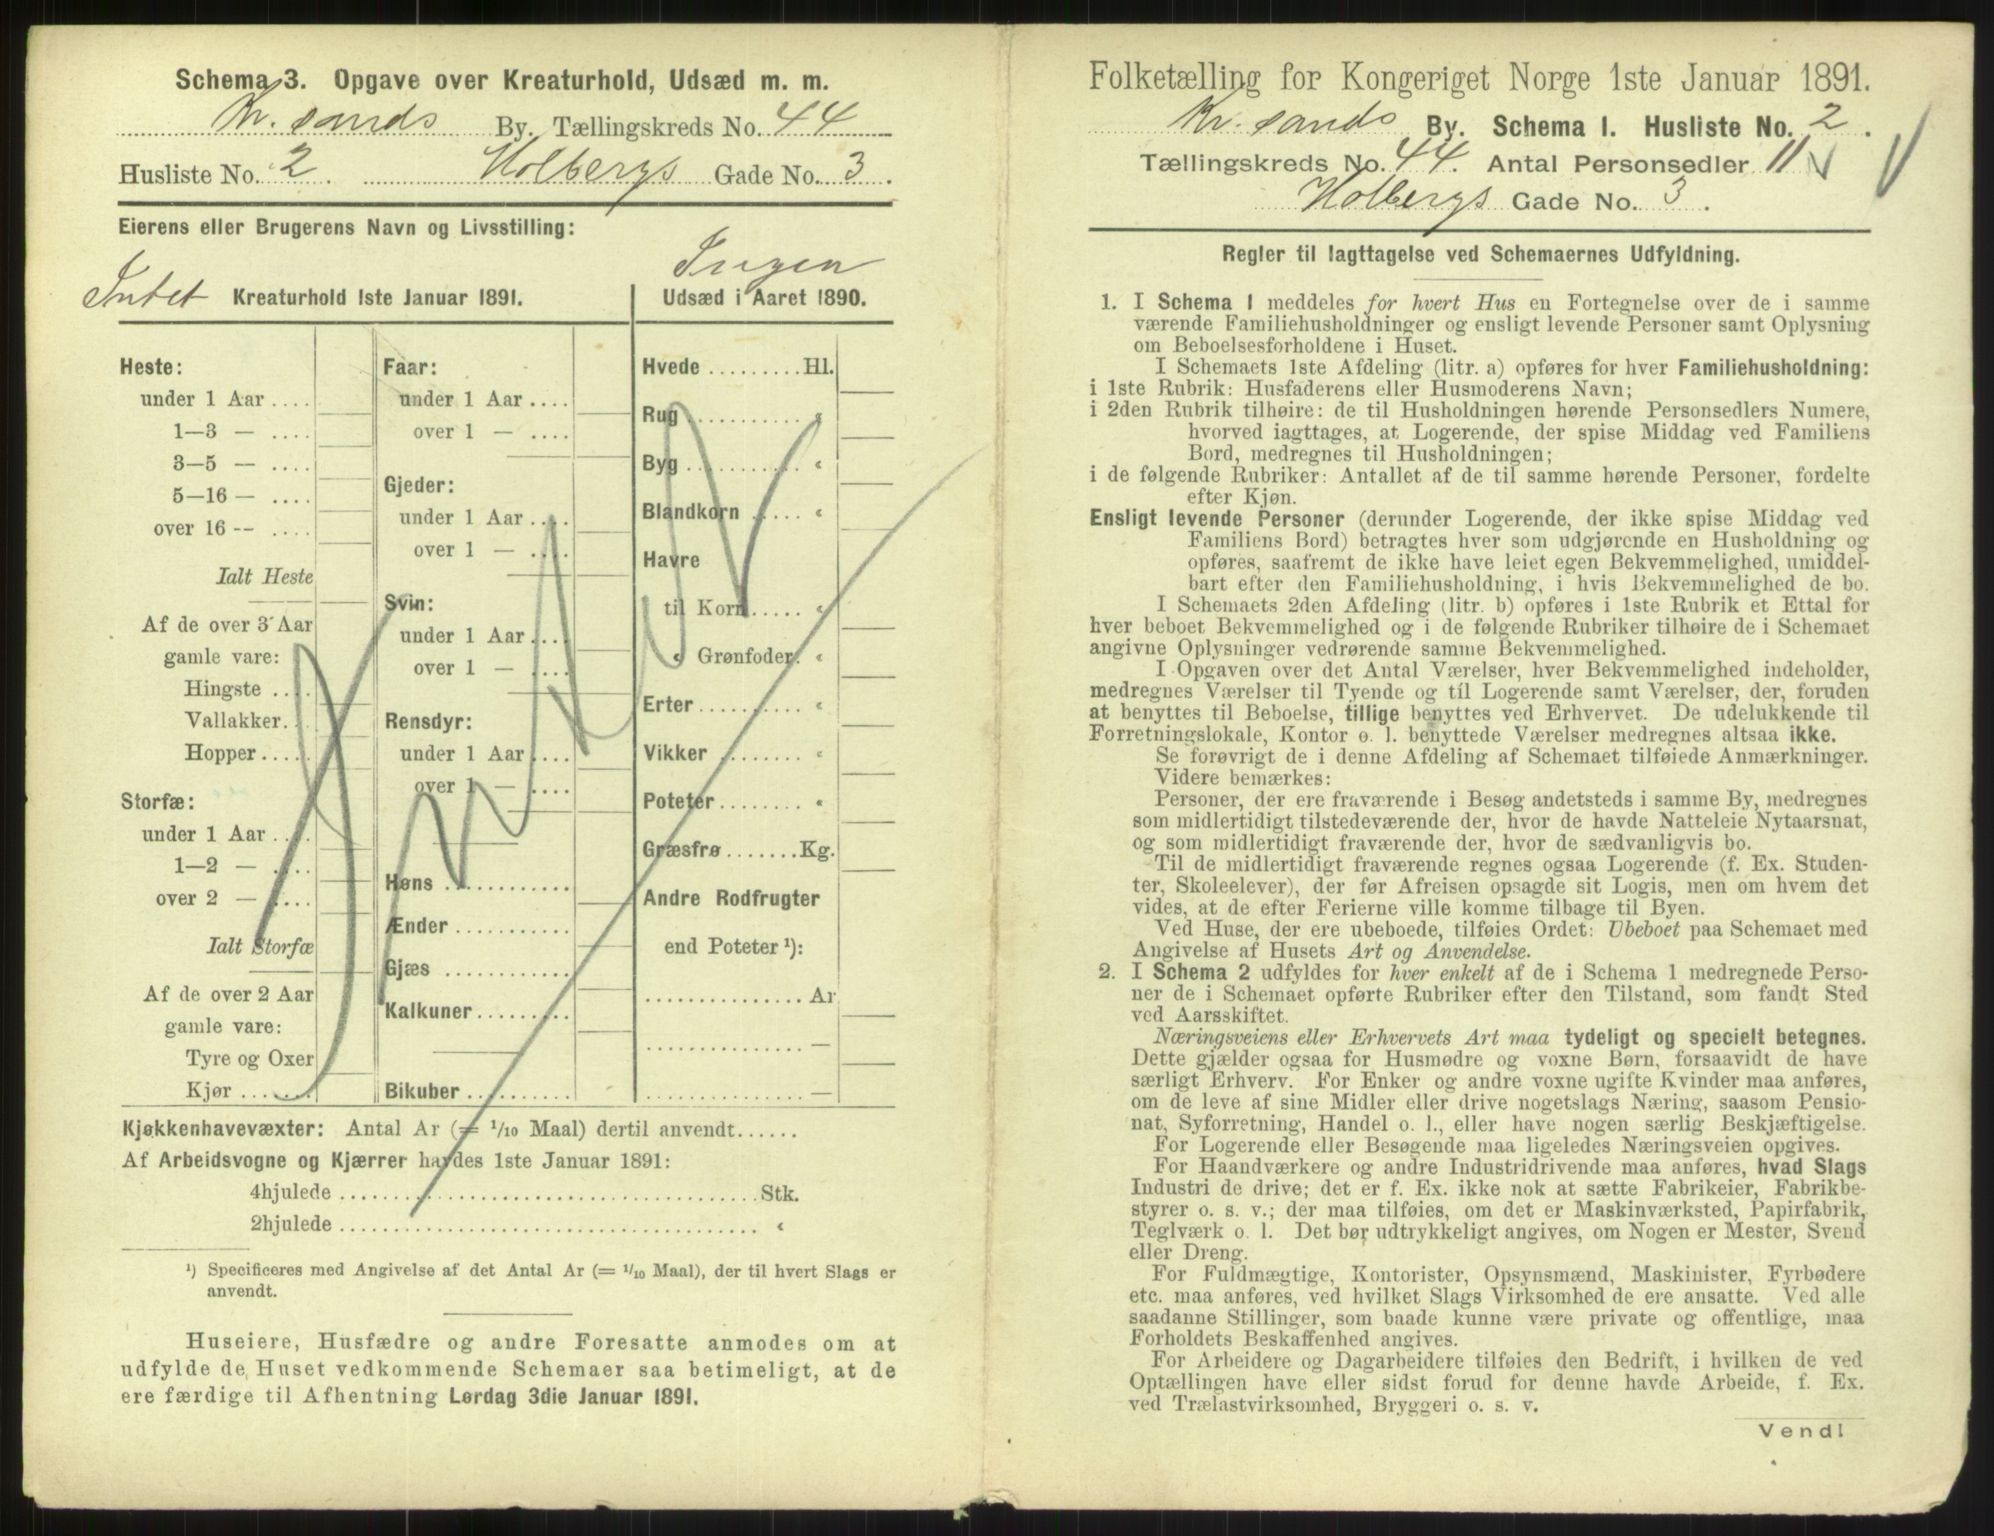 Schema 3. Opgave over Kreaturhold, Udsæd m. m.
Kr. sands By. Tællingskreds No. 44
Husliste No. 2. Holbergs Gade No. 3.
Eierens eller Brugerens Navn og Livsstilling:
Intet Kreaturhold 1ste Januar 1891.
Heste:
under 1 Aar ....
1—3 — ....
3—5 — ....
5—16 — ....
over 16 -- ....
Ialt Heste
Af de over 3 Aar
gamle vare:
Hingste ....
Vallakker....
Hopper.....
Storfæ:
under 1 Aar ....
1—2 — ....
over 2 — ....
Ialt Storfæ
Af de over 2 Aar
gamle vare:
Tyre og Oxer
Kjør .......
Faar:
under 1 Aar ....
over 1 — ....
Gjeder:
under 1 Aar ....
over 1 — ....
Svin:
under 1 Aar ....
over 1 — ....
Rensdyr:
under 1 Aar ....
over 1 — ....
Høns ...........
Ænder ..........
Gjæs ...........
Kalkuner........
Bikuber .........
Ingen
Udsæd i Aaret 1890.
Hvede .........Hl.
Rug ........... «
Byg ........... «
Blandkorn ..... «
Havre
til Korn..... «
« Grønfoder. «
Erter.......... «
Vikker ........ «
Poteter........ «
Græsfrø .......Kg.
Andre Rodfrugter
end Poteter ¹):
............... Ar
............... —
............... —
Kjøkkenhavevæxter: Antal Ar (= 1/10 Maal) dertil anvendt......
Af Arbeidsvogne og Kjærrer havdes 1ste Januar 1891:
4hjulede ........................................Stk.
2hjulede ........................................ «
¹) Specificeres med Angivelse af det Antal Ar (= 1/10 Maal), der til hvert Slags er
anvendt.
Huseiere, Husfædre og andre Foresatte anmodes om at
udfylde de Huset vedkommende Schemaer saa betimeligt, at de
ere færdige til Afhentning Lørdag 3die Januar 1891.
Folketælling for Kongeriget Norge 1ste Januar 1891.
Kr. sands By. Schema I. Husliste No. 2.
Tællingskreds No. 44. Antal Personsedler 11
Holbergs Gade No. 3.
Regler til Iagttagelse ved Schemaernes Udfyldning.
1. I Schema I meddeles for hvert Hus en Fortegnelse over de i samme
værende Familiehusholdninger og ensligt levende Personer samt Oplysning
om Beboelsesforholdene i Huset.
I Schemaets 1ste Afdeling (litr. a) opføres for hver Familiehusholdning:
i 1ste Rubrik: Husfaderens eller Husmoderens Navn;
i 2den Rubrik tilhøire: de til Husholdningen hørende Personsedlers Numere,
hvorved iagttages, at Logerende, der spise Middag ved Familiens
Bord, medregnes til Husholdningen;
i de følgende Rubriker: Antallet af de til samme hørende Personer, fordelte
efter Kjøn.
Ensligt levende Personer (derunder Logerende, der ikke spise Middag ved
Familiens Bord) betragtes hver som udgjørende en Husholdning og
opføres, saafremt de ikke have leiet egen Bekvemmelighed, umiddel-
bart efter den Familiehusholdning, i hvis Bekvemmelighed de bo.
I Schemaets 2den Afdeling (litr. b) opføres i 1ste Rubrik et Ettal for
hver beboet Bekvemmelighed og i de følgende Rubriker tilhøire de i Schemaet
angivne Oplysninger vedrørende samme Bekvemmelighed.
I Opgaven over det Antal Værelser, hver Bekvemmelighed indeholder,
medregnes Værelser til Tyende og til Logerende samt Værelser, der, foruden
at benyttes til Beboelse, tillige benyttes ved Erhvervet. De udelukkende til
Forretningslokale, Kontor o. l. benyttede Værelser medregnes altsaa ikke.
Se forøvrigt de i denne Afdeling af Schemaet tilføiede Anmærkninger.
Videre bemærkes:
Personer, der ere fraværende i Besøg andetsteds i samme By, medregnes
som midlertidigt tilstedeværende der, hvor de havde Natteleie Nytaarsnat,
og som midlertidigt fraværende der, hvor de sædvanligvis bo.
Til de midlertidigt fraværende regnes ogsaa Logerende (f. Ex. Studen-
ter, Skoleelever), der før Afreisen opsagde sit Logis, men om hvem det
vides, at de efter Ferierne ville komme tilbage til Byen.
Ved Huse, der ere ubeboede, tilføies Ordet: Ubeboet paa Schemaet med
Angivelse af Husets Art og Anvendelse.
2. I Schema 2 udfyldes for hver enkelt af de i Schema 1 medregnede Perso-
ner de i Schemaet opførte Rubriker efter den Tilstand, som fandt Sted
ved Aarsskiftet.
Næringsveiens eller Erhvervets Art maa tydeligt og specielt betegnes.
Dette gjælder ogsaa for Husmødre og voxne Børn, forsaavidt de have
særligt Erhverv. For Enker og andre voxne ugifte Kvinder maa anføres,
om de leve af sine Midler eller drive nogetslags Næring, saasom Pensio-
nat, Syforretning, Handel o. l., eller have nogen særlig Beskjæftigelse.
For Logerende eller Besøgende maa ligeledes Næringsveien opgives.
For Haandværkere og andre Industridrivende maa anføres, hvad Slags
Industri de drive; det er f. Ex. ikke nok at sætte Fabrikeier, Fabrikbe-
styrer o. s. v.; der maa tilføies, om det er Maskinværksted, Papirfabrik,
Teglværk o. l. Det bør udtrykkeligt angives, om Nogen er Mester, Svend
eller Dreng.
For Fuldmægtige, Kontorister, Opsynsmænd, Maskinister, Fyrbødere
etc. maa anføres, ved hvilket Slags Virksomhed de ere ansatte. Ved alle
saadanne Stillinger, som baade kunne være private og offentlige, maa
Forholdets Beskaffenhed angives.
For Arbeidere og Dagarbeidere tilføies den Bedrift, i hvilken de ved
Optællingen have eller sidst forud for denne havde Arbeide, f. Ex.
ved Trælastvirksomhed, Bryggeri o. s. v.
Vend!